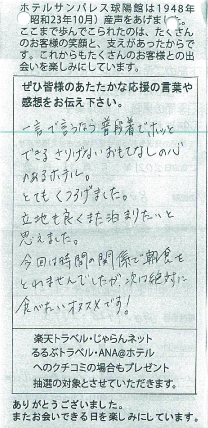 ホテルサンパレス球陽館は1948年
(昭和23年10月) 産声をあげました。
ここまで歩んでこられたのは、たくさん
のお客様の笑顔と、支えがあったからで
す。これからもたくさんのお客様との出
会いを楽しみにしています。
ぜひ皆様のあたたかな応援の言葉や
感想をお伝え下さい。
一言で言うなら普段着でホッと
できるさりげないおもてなしの心
のあるホテル。
とてもくつろげました。
立地も良くまた泊まりたいと
思えました。
今回は時間の関係で朝食を
とれませんでしたが、次は絶対に
食べたいオススメです!
楽天トラベル・じゃらんネット
るるぶトラベル・ANA@ホテル
へのクチコミの場合もプレゼント
抽選の対象とさせていただきます。
ありがとうございました。
またお会いできる日を楽しみにしています。